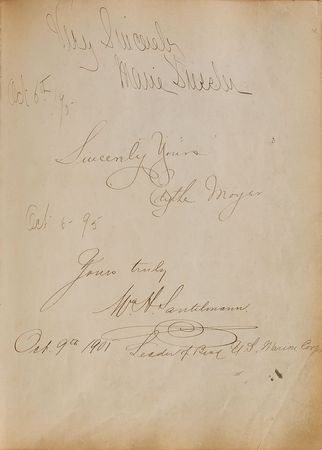 Very Sincerely
Marie
Oct 6th 95
Sincerely Yours
Moyer
Oct 6 - 95
Yours truly
Wm H Santelmann
Oct 9th 1901 Leader of Band U.S. Marine Corps